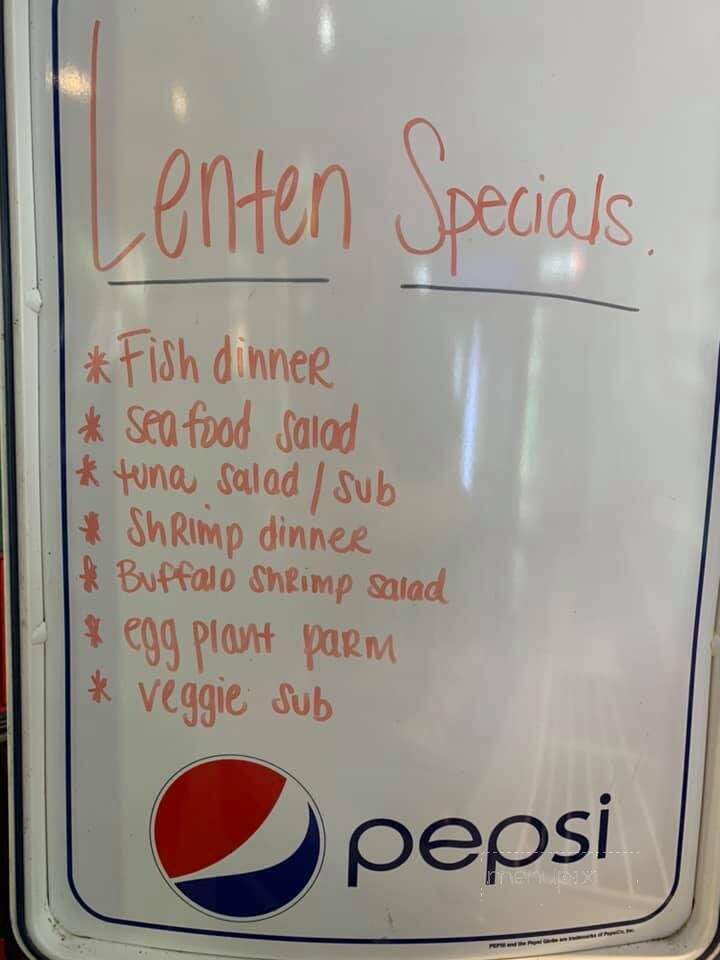 Lenten Specials.
* Fish dinner
* sea food salad
* tuna salad / sub
* Shrimp dinner
* Buffalo Shrimp salad
* egg plant parm
* veggie sub
pepsi
menupix
PEPSI and the Pepsi Globe are trademarks of PepsiCo, Inc.